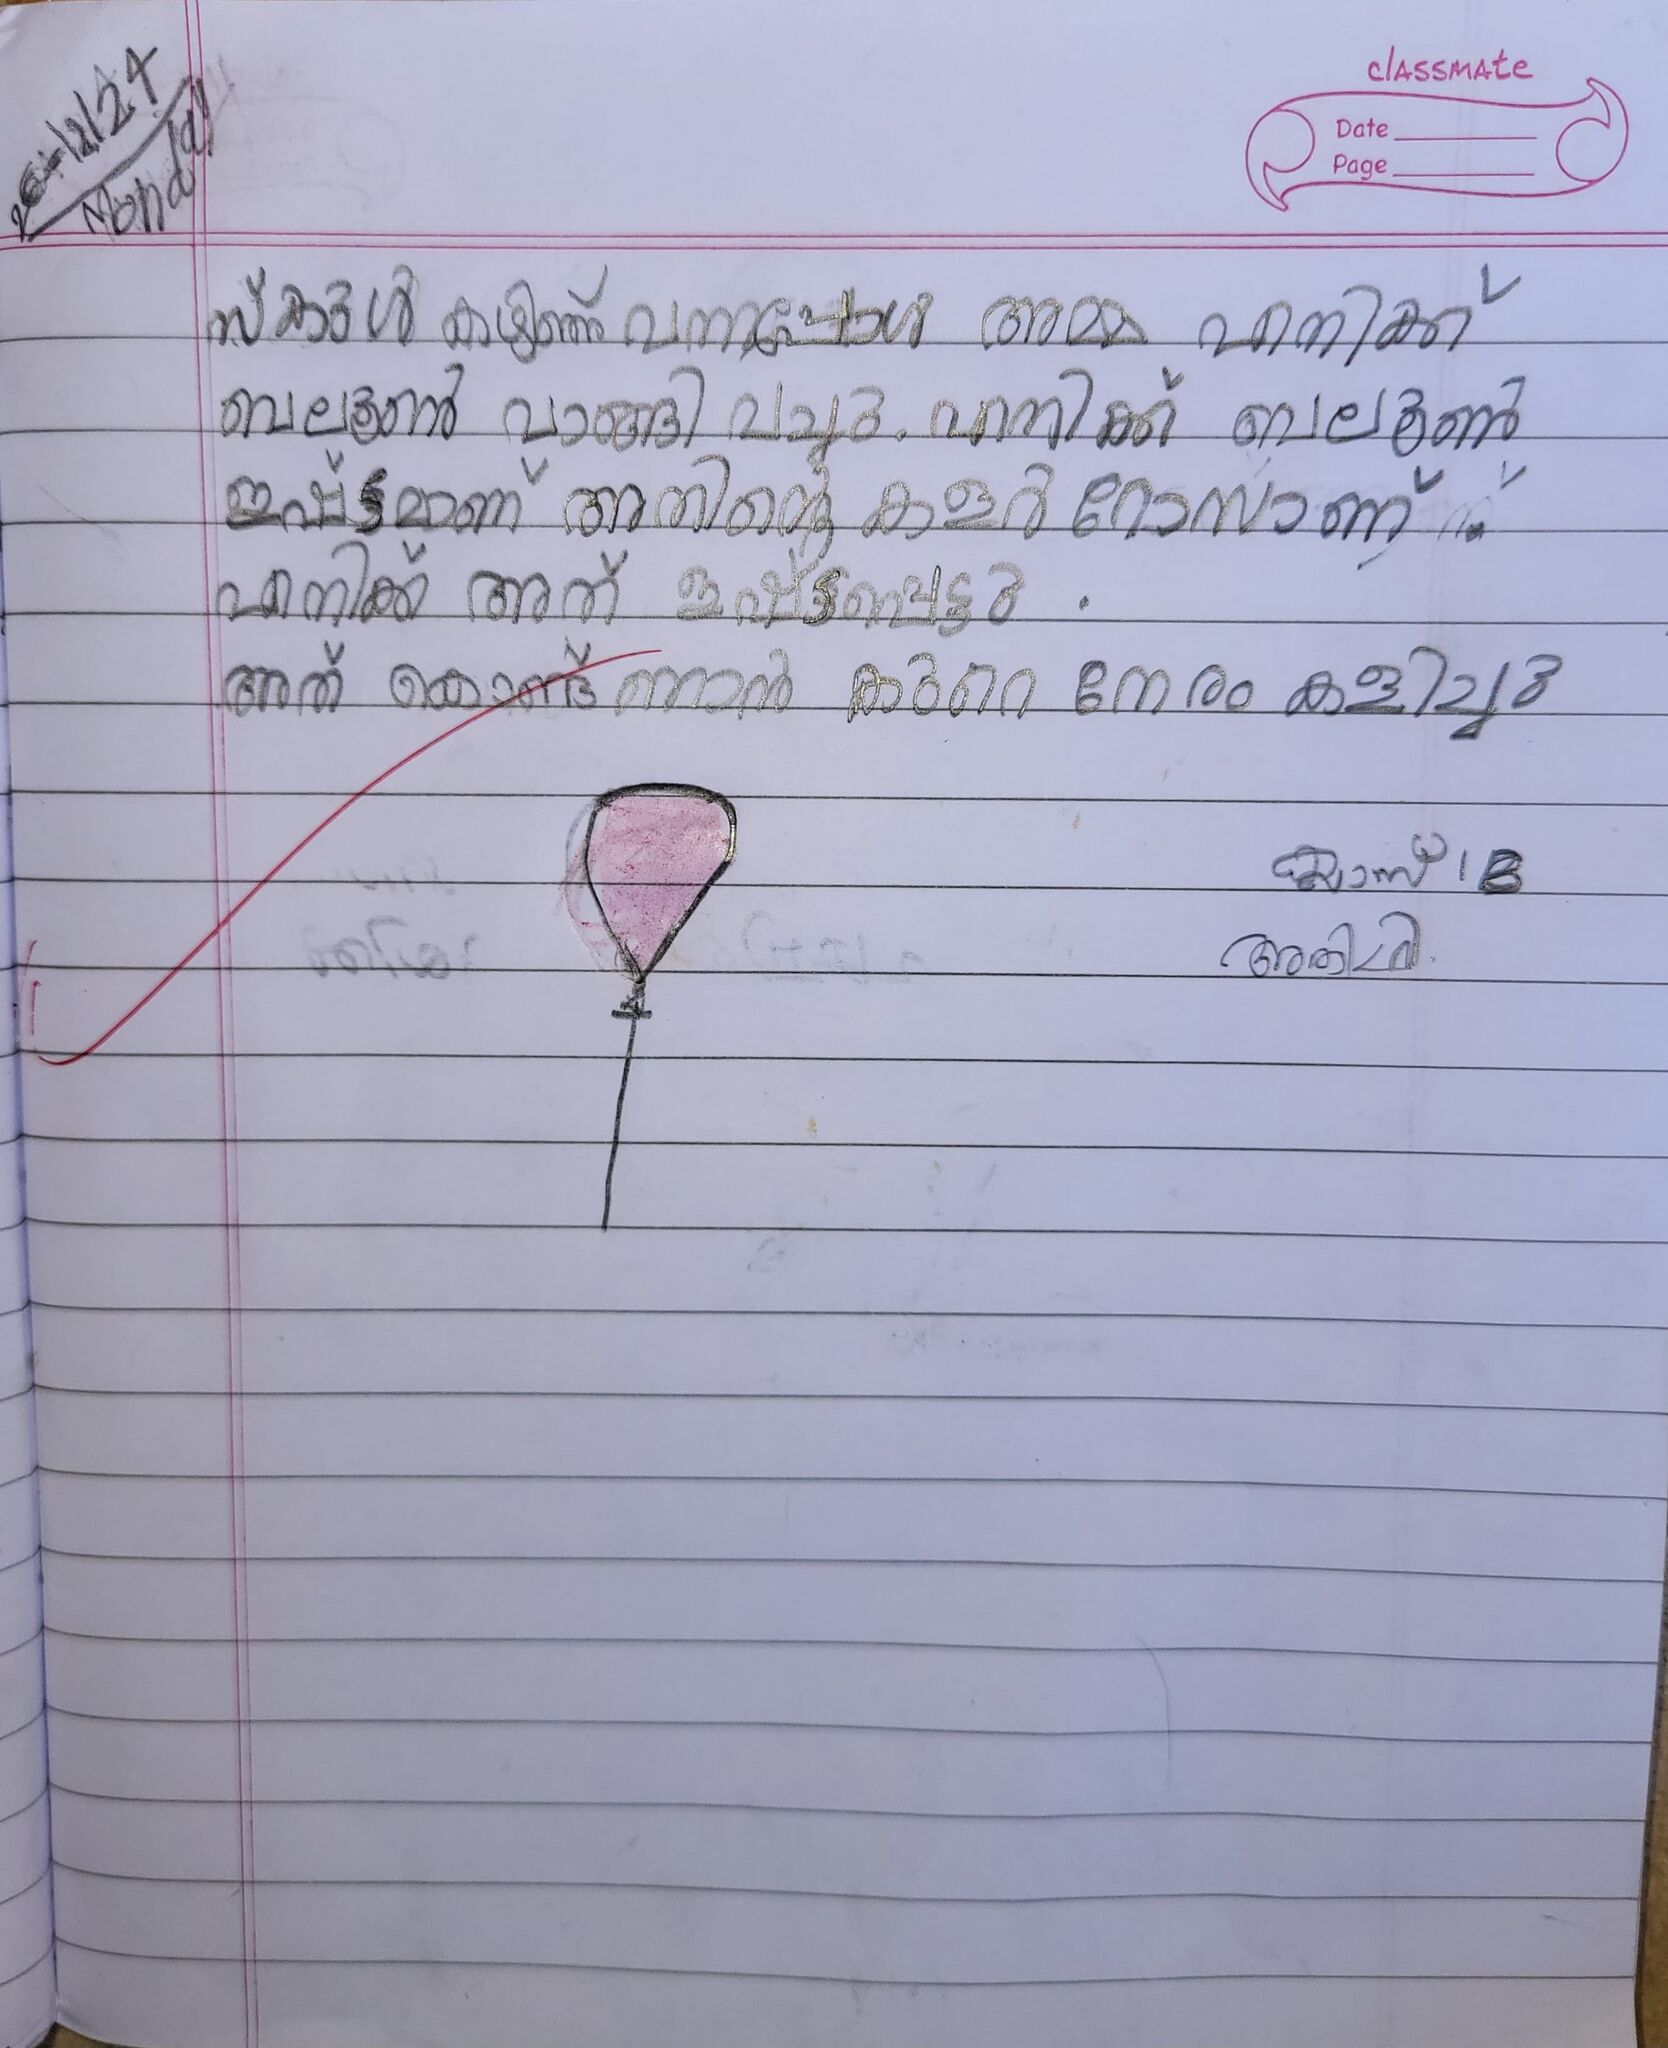 classmate
Date
Page
/12/24
Monday
സ്കൂൾ കഴിഞ്ഞ് വന്നപ്പോൾ അമ്മ എനിക്ക്
ബലൂൺ വാങ്ങി വച്ചു. എനിക്ക് ബലൂൺ
ഇഷ്ട്ടമാണ് അതിന്റെ കളർ റോസാണ്
എനിക്ക് അത് ഇഷ്ട്ടപ്പെട്ടു .
അത് കൊണ്ട് ഞാൻ കുറെ നേരം കളിച്ചു
ക്ലാസ് 1 B